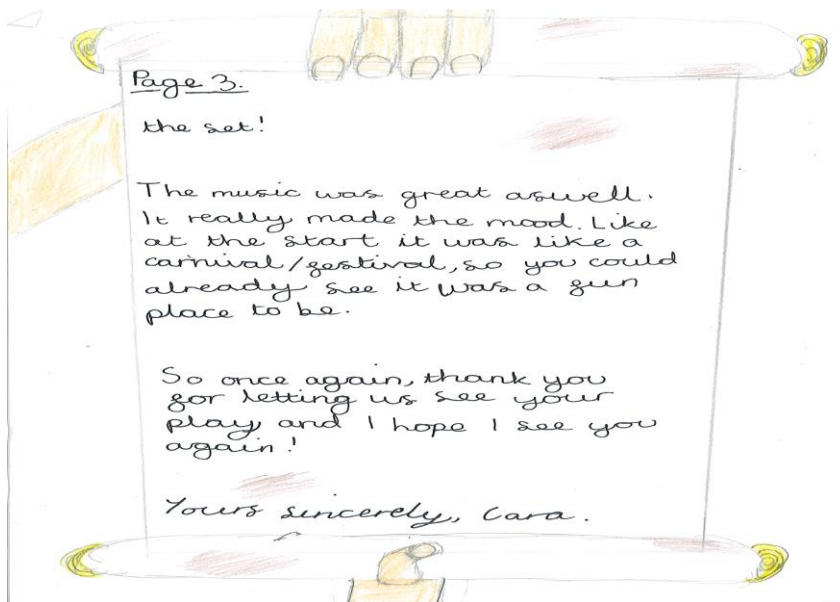 Page 3.
the set!
The music was great aswell.
It really made the mood. Like
at the start it was like a
carnival/festival, so you could
already see it was a fun
place to be.
So once again, thank you
for letting us see your
play, and I hope I see you
again!
Yours sincerely, Cara.